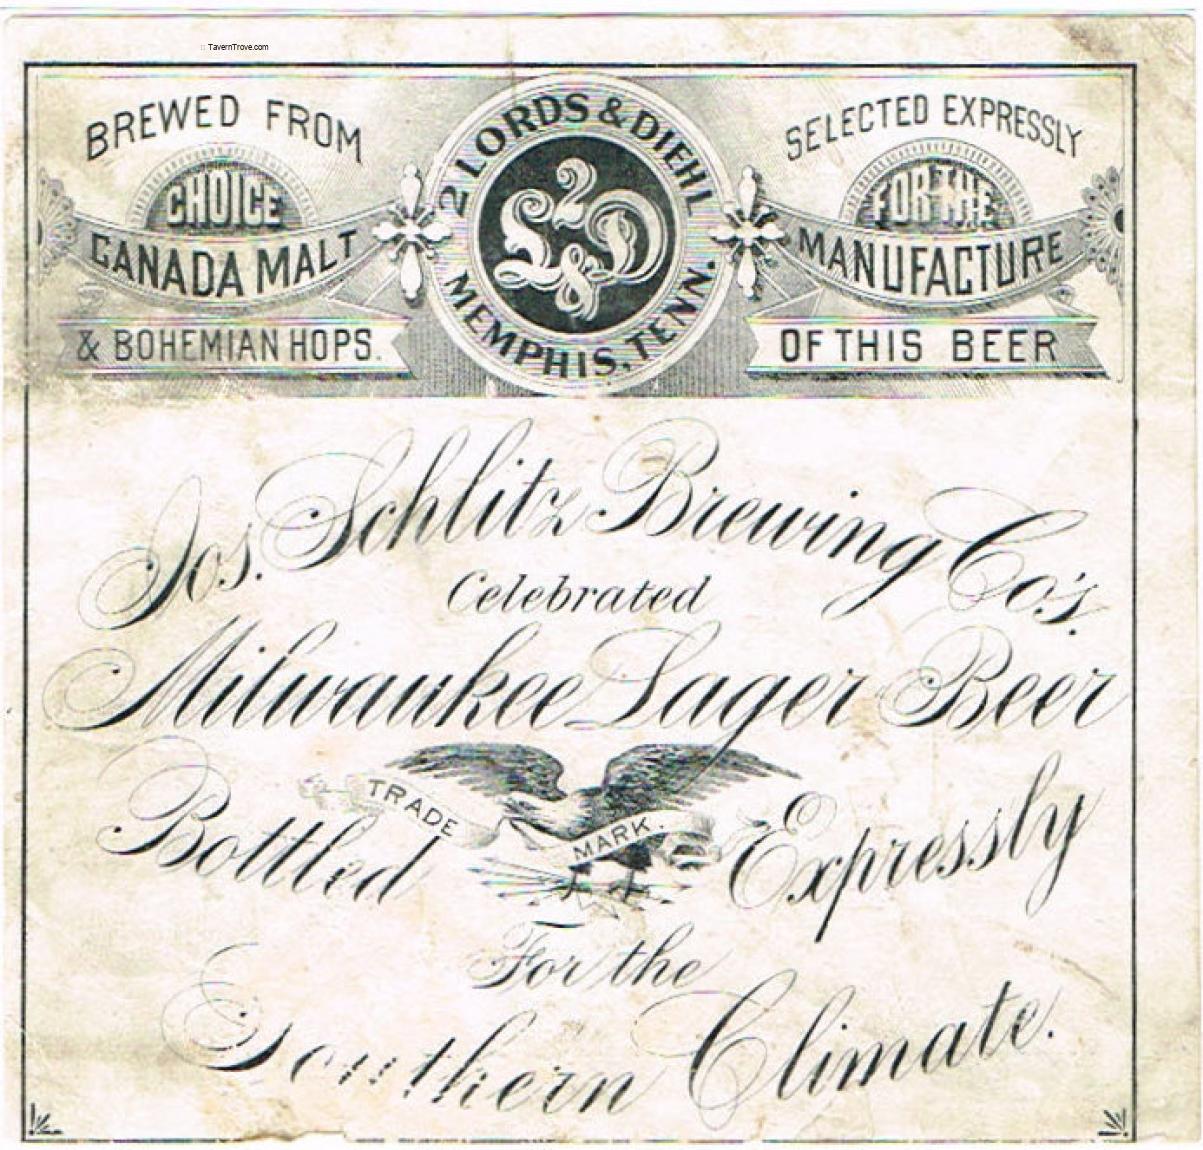 :: TavernTrove.com
BREWED FROM
CHOICE
CANADA MALT
& BOHEMIAN HOPS.
2 LORDS & DIEHL
2 L & D
MEMPHIS, TENN.
SELECTED EXPRESSLY
FOR THE
MANUFACTURE
OF THIS BEER
Jos. Schlitz Brewing Co's.
Celebrated
Milwaukee Lager Beer
TRADE MARK.
Bottled Expressly
For the
Southern Climate.